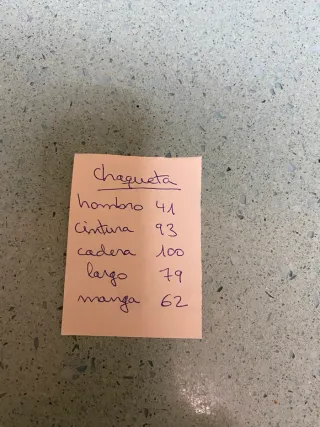 chaqueta
hombro 41
cintura 93
cadera 100
largo 79
manga 62